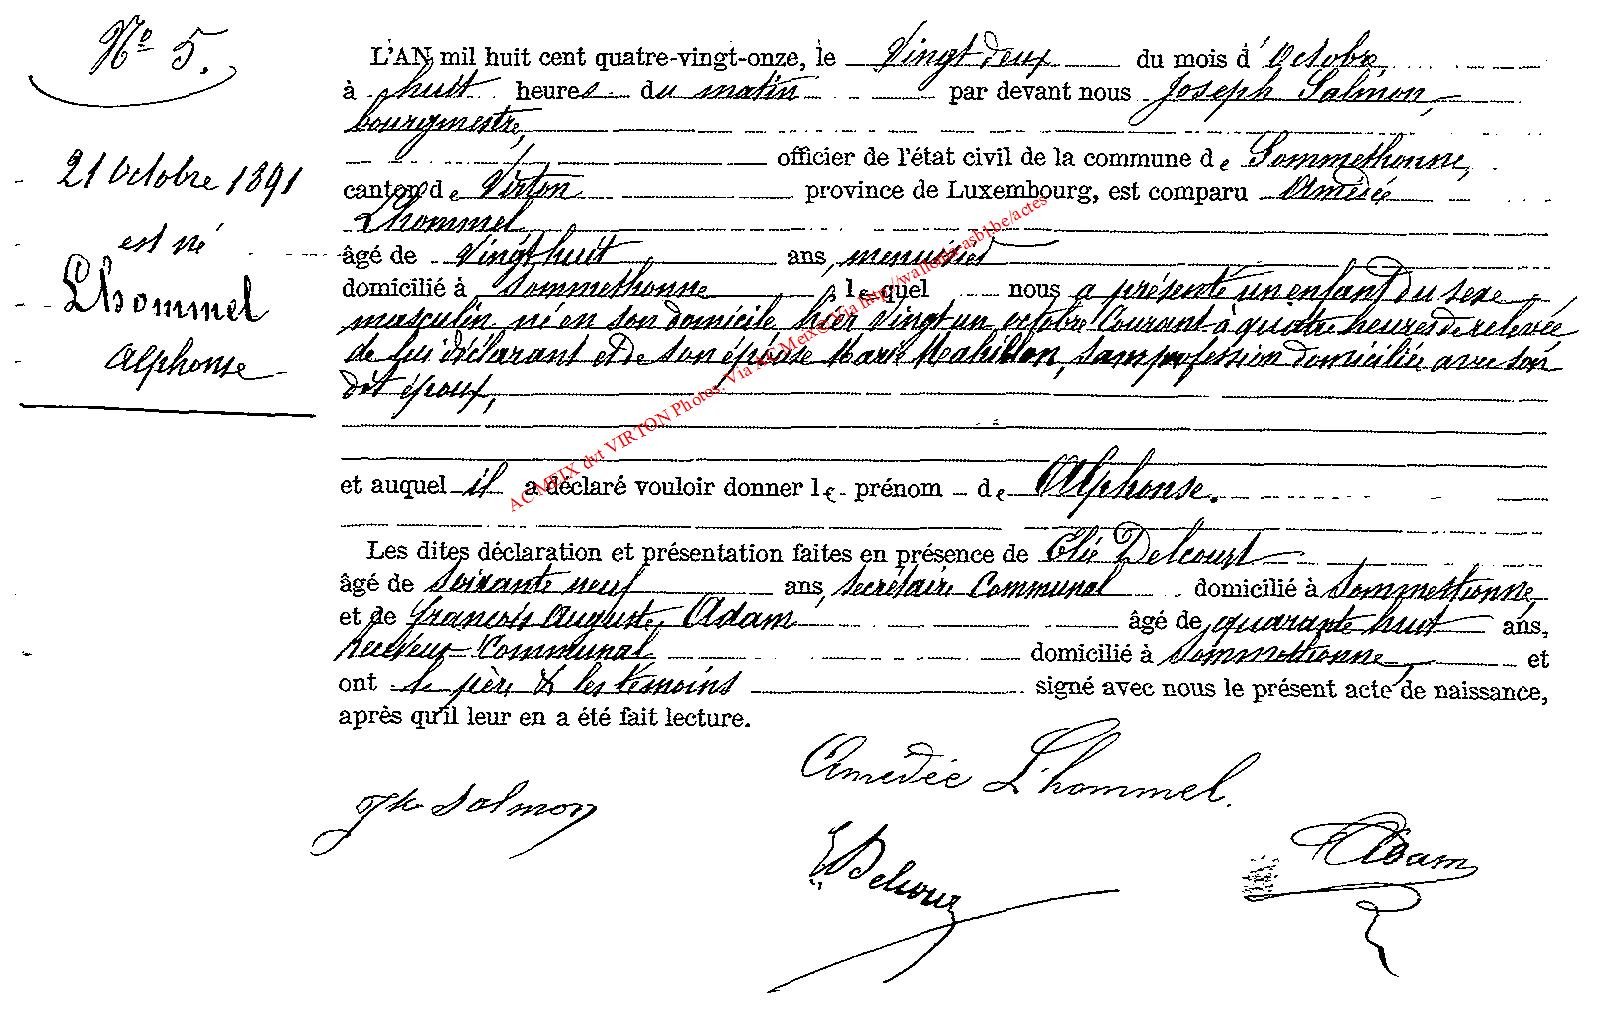 N° 5.
21 Octobre 1891
est né
Lhommel
Alphonse
L'AN mil huit cent quatre-vingt-onze, le Vingt deux du mois d'Octobre,
à huit heures du matin par devant nous Joseph Salmon,
bourgmestre,
officier de l'état civil de la commune de Sommethonne,
canton de Virton province de Luxembourg, est comparu Amédée
Lhommel
âgé de Vingt huit ans, menuisier
domicilié à Sommethonne, lequel nous a présenté un enfant du sexe
masculin, né en son domicile hier Vingt un octobre Courant à quatre heures de relevée,
de lui déclarant et de son épouse Marie Mahillon, sans profession domiciliée avec son
dit époux,
et auquel il a déclaré vouloir donner le prénom de Alphonse.
Les dites déclaration et présentation faites en présence de Elie Delcourt
âgé de soixante neuf ans, secrétaire Communal domicilié à Sommethonne,
et de François Auguste Adam âgé de quarante huit ans,
Receveur Communal domicilié à Sommethonne, et
ont le père & les témoins signé avec nous le présent acte de naissance,
après qu'il leur en a été fait lecture.
Amédée L'hommel.
Jh Salmon
E Delcour
Adam
AC MEIX dvt VIRTON Photos: Via AC Meix@ Via http://wallonia-asbl.be/actes